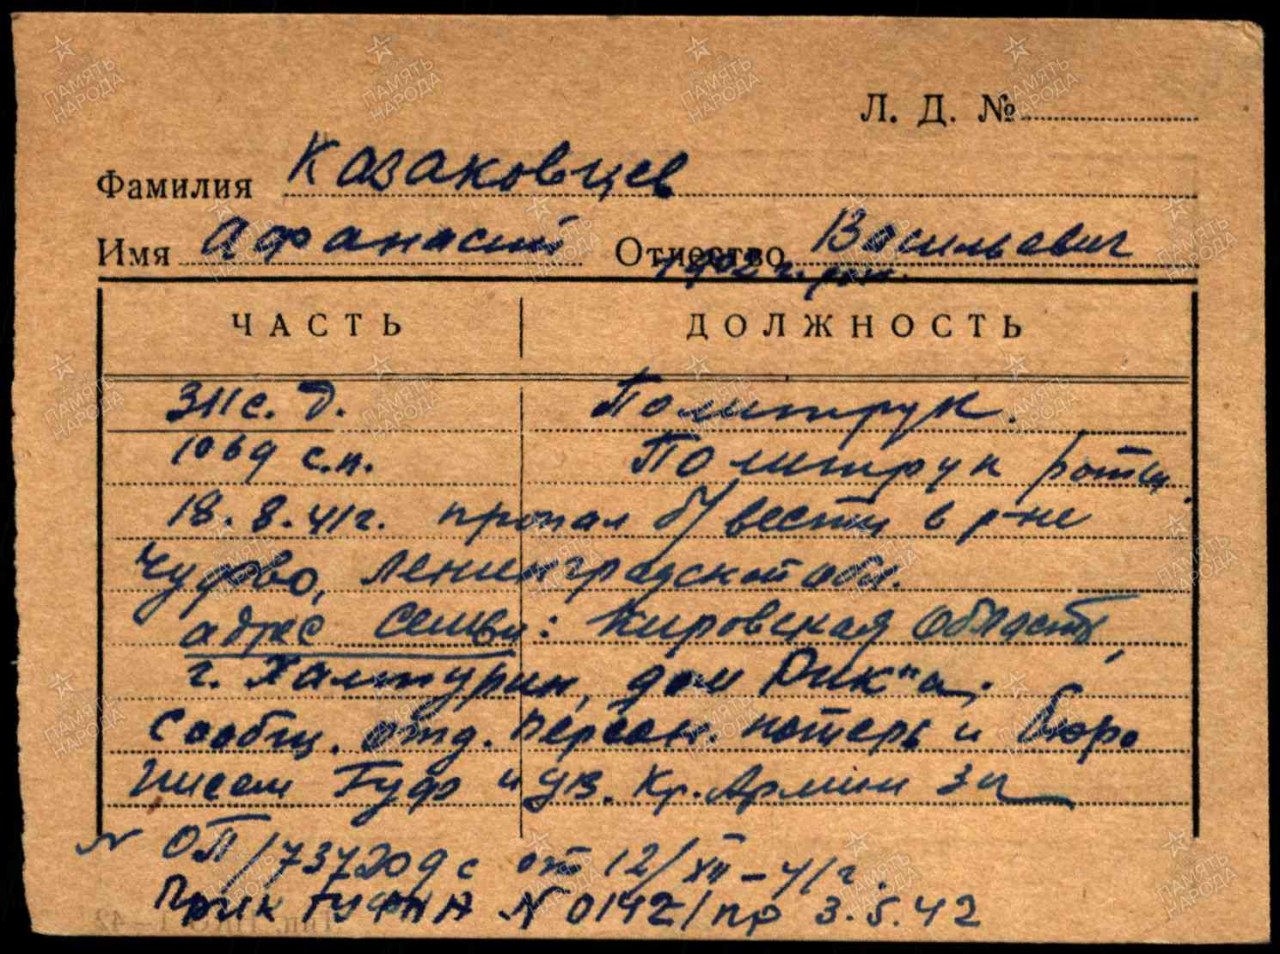 Л. Д. №
Фамилия Казаковцев
Имя Афанасий Отчество Васильевич
1902 г. рож.
ЧАСТЬ ДОЛЖНОСТЬ
311 с. д. Политрук.
1069 с.п. Политрук роты
18.8.41г. пропал б/вести в р-не
Чудово, Ленинградской обл.
адрес семьи: Кировская область,
г. Халтурин, дом Рик"а.
Сообщ. отд. персон. потерь и бюро
писем Гуф и ув. Кр. Армии за
№ ОП/737209с от 12/XII-41г.
Прик ГУФКА № 0142/пр 3.5.42
ПАМЯТЬ НАРОДА